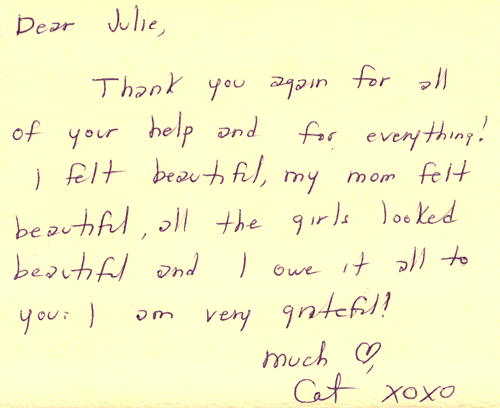 Dear Julie,
Thank you again for all
of your help and for everything!
I felt beautiful, my mom felt
beautiful, all the girls looked
beautiful and I owe it all to
you: I am very grateful!
much ♡,
Cat xoxo